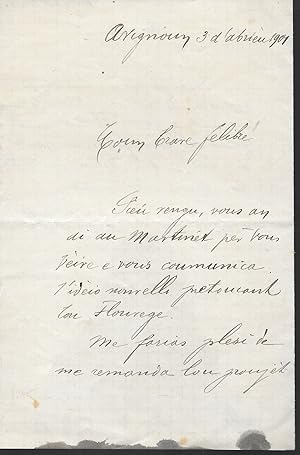 Avignoun 3 d'abrieu 1901
Moun brave felibre
Siéu vengu, vous an
di au Martinet pèr vous
vèire e vous coumunica
l'idèio nouvello pretoucant
lou Flourege.
Me farias plesi de
me remanda lou proujèt